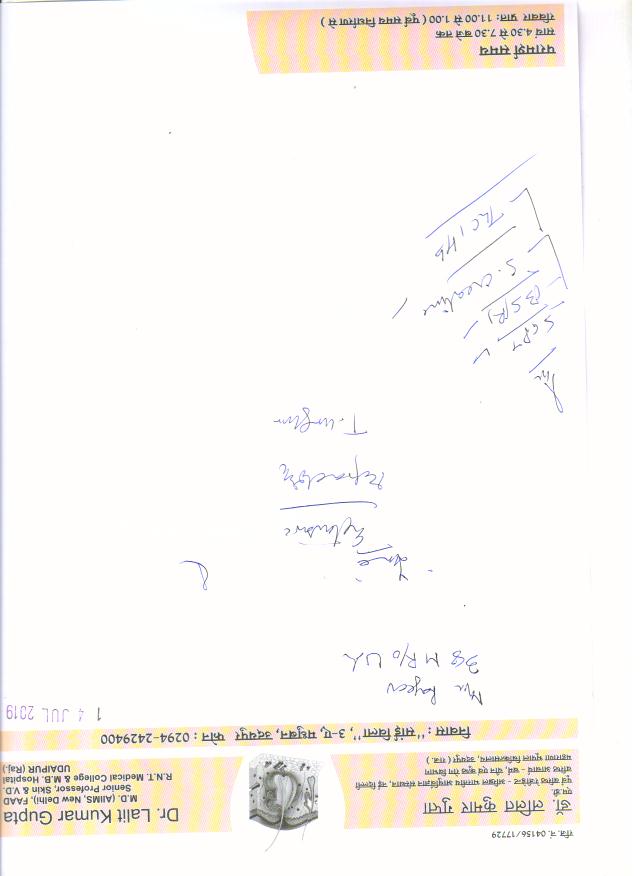 रजि. नं. 04156/17729
डॉ. ललित कुमार गुप्ता
एम.डी.
पूर्व वरिष्ठ रेजीडेन्ट - अखिल भारतीय आयुर्विज्ञान संस्थान, नई दिल्ली
वरिष्ठ आचार्य - चर्म, यौन एवं कुष्ठ रोग विभाग
महाराणा भूपाल चिकित्सालय, उदयपुर ( राज. )
Dr. Lalit Kumar Gupta
M.D. (AIIMS, New Delhi), FAAD
Senior Professor, Skin & V.D.
R.N.T. Medical College & M.B. Hospital
UDAIPUR (Raj.)
निवास : "साईं विला", 3-ए, मधुबन, उदयपुर फोन : 0294-2429400
1 4 JUL 2019
Mr. Rajeev
38 M R/o
Extensive
T.
SGPT
S. Creatine
TLC / Hb
परामर्श समय
सायं 4.30 से 7.30 बजे तक
रविवार प्रातः 11.00 से 1.00 ( पूर्व समय निर्धारण से )